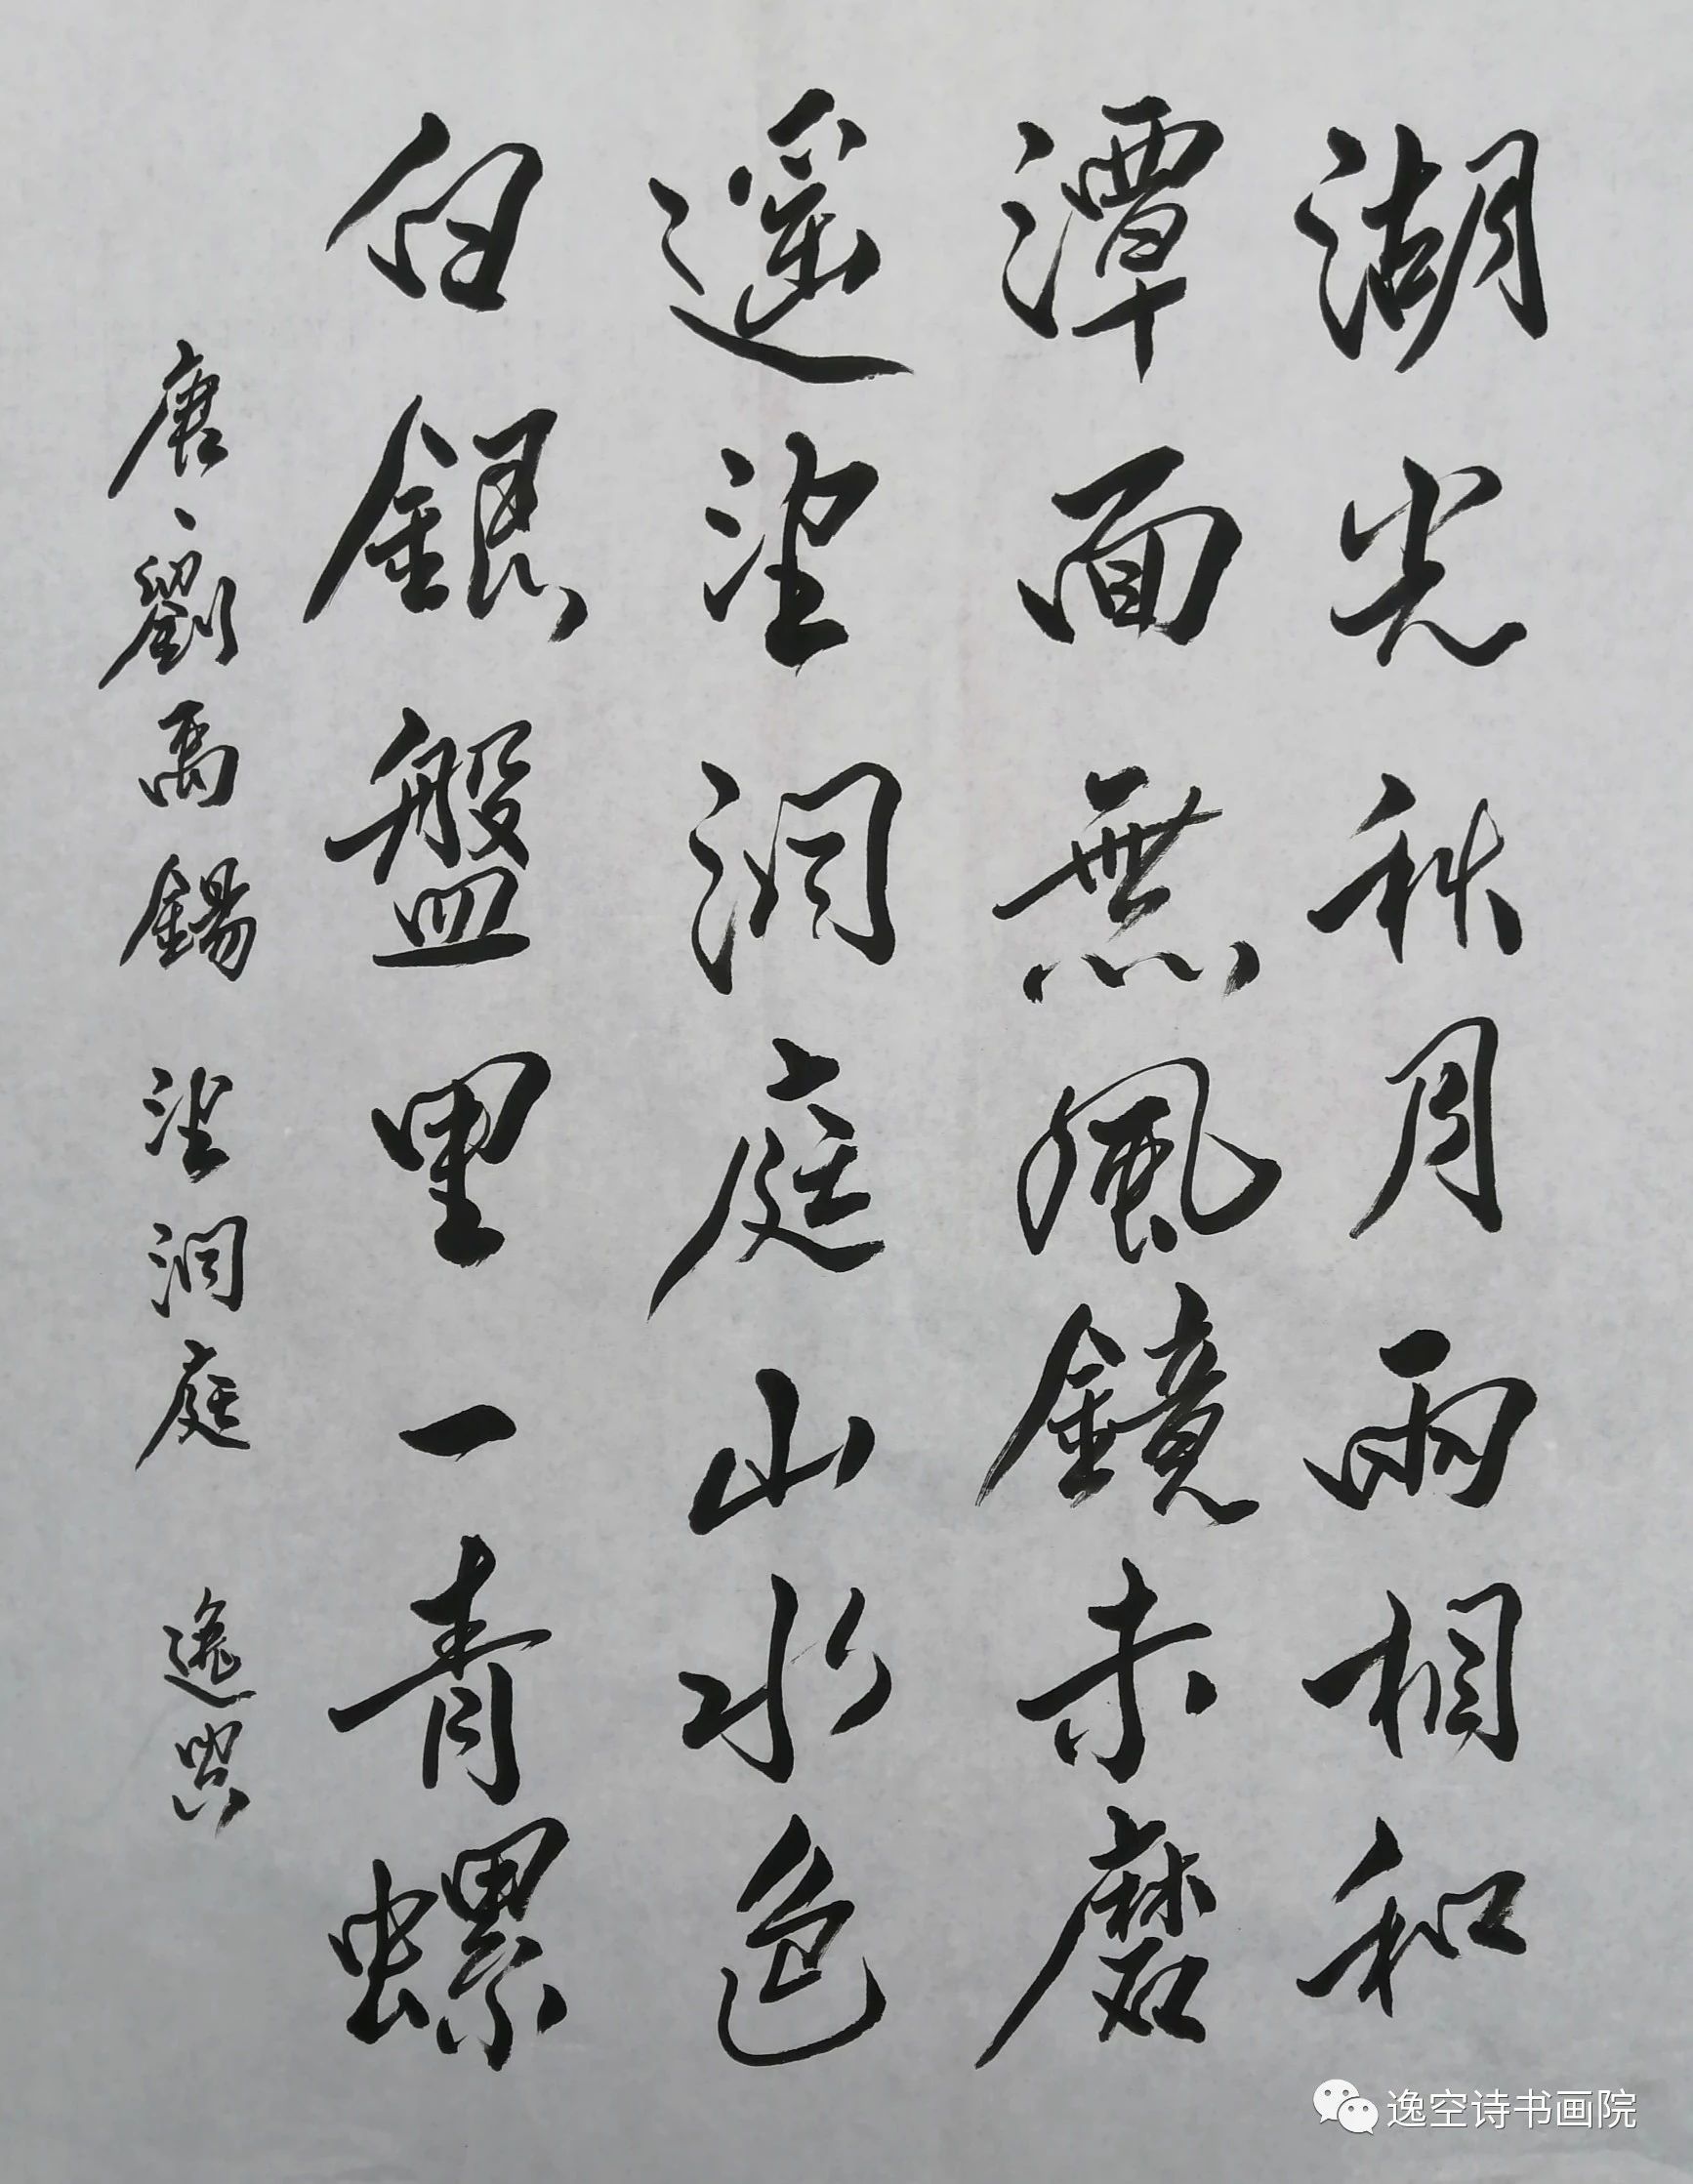 湖光秋月兩相和
潭面無風鏡未磨
遥望洞庭山水色
白銀盤里一青螺
唐、劉禹錫 望洞庭 逸興
逸空诗书画院